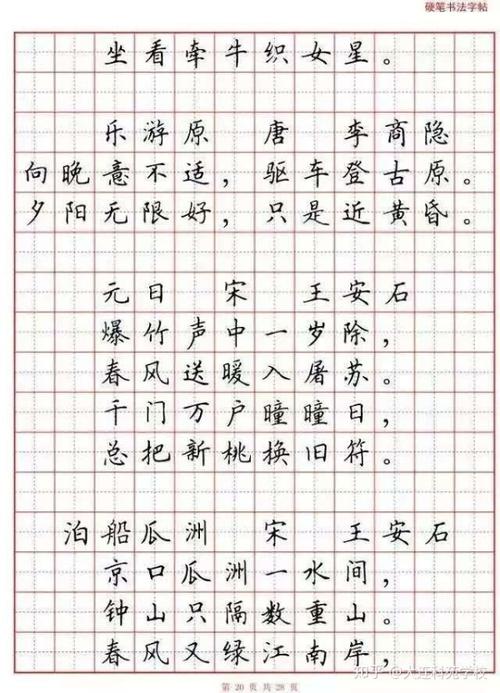 硬笔书法字帖
坐看牵牛织女星。
乐游原 唐 李商隐
向晚意不适，驱车登古原。
夕阳无限好，只是近黄昏。
元日 宋 王安石
爆竹声中一岁除，
春风送暖入屠苏。
千门万户曈曈日，
总把新桃换旧符。
泊船瓜洲 宋 王安石
京口瓜洲一水间，
钟山只隔数重山。
春风又绿江南岸，
知乎 @大连科苑学校
第 20 页 共 28 页